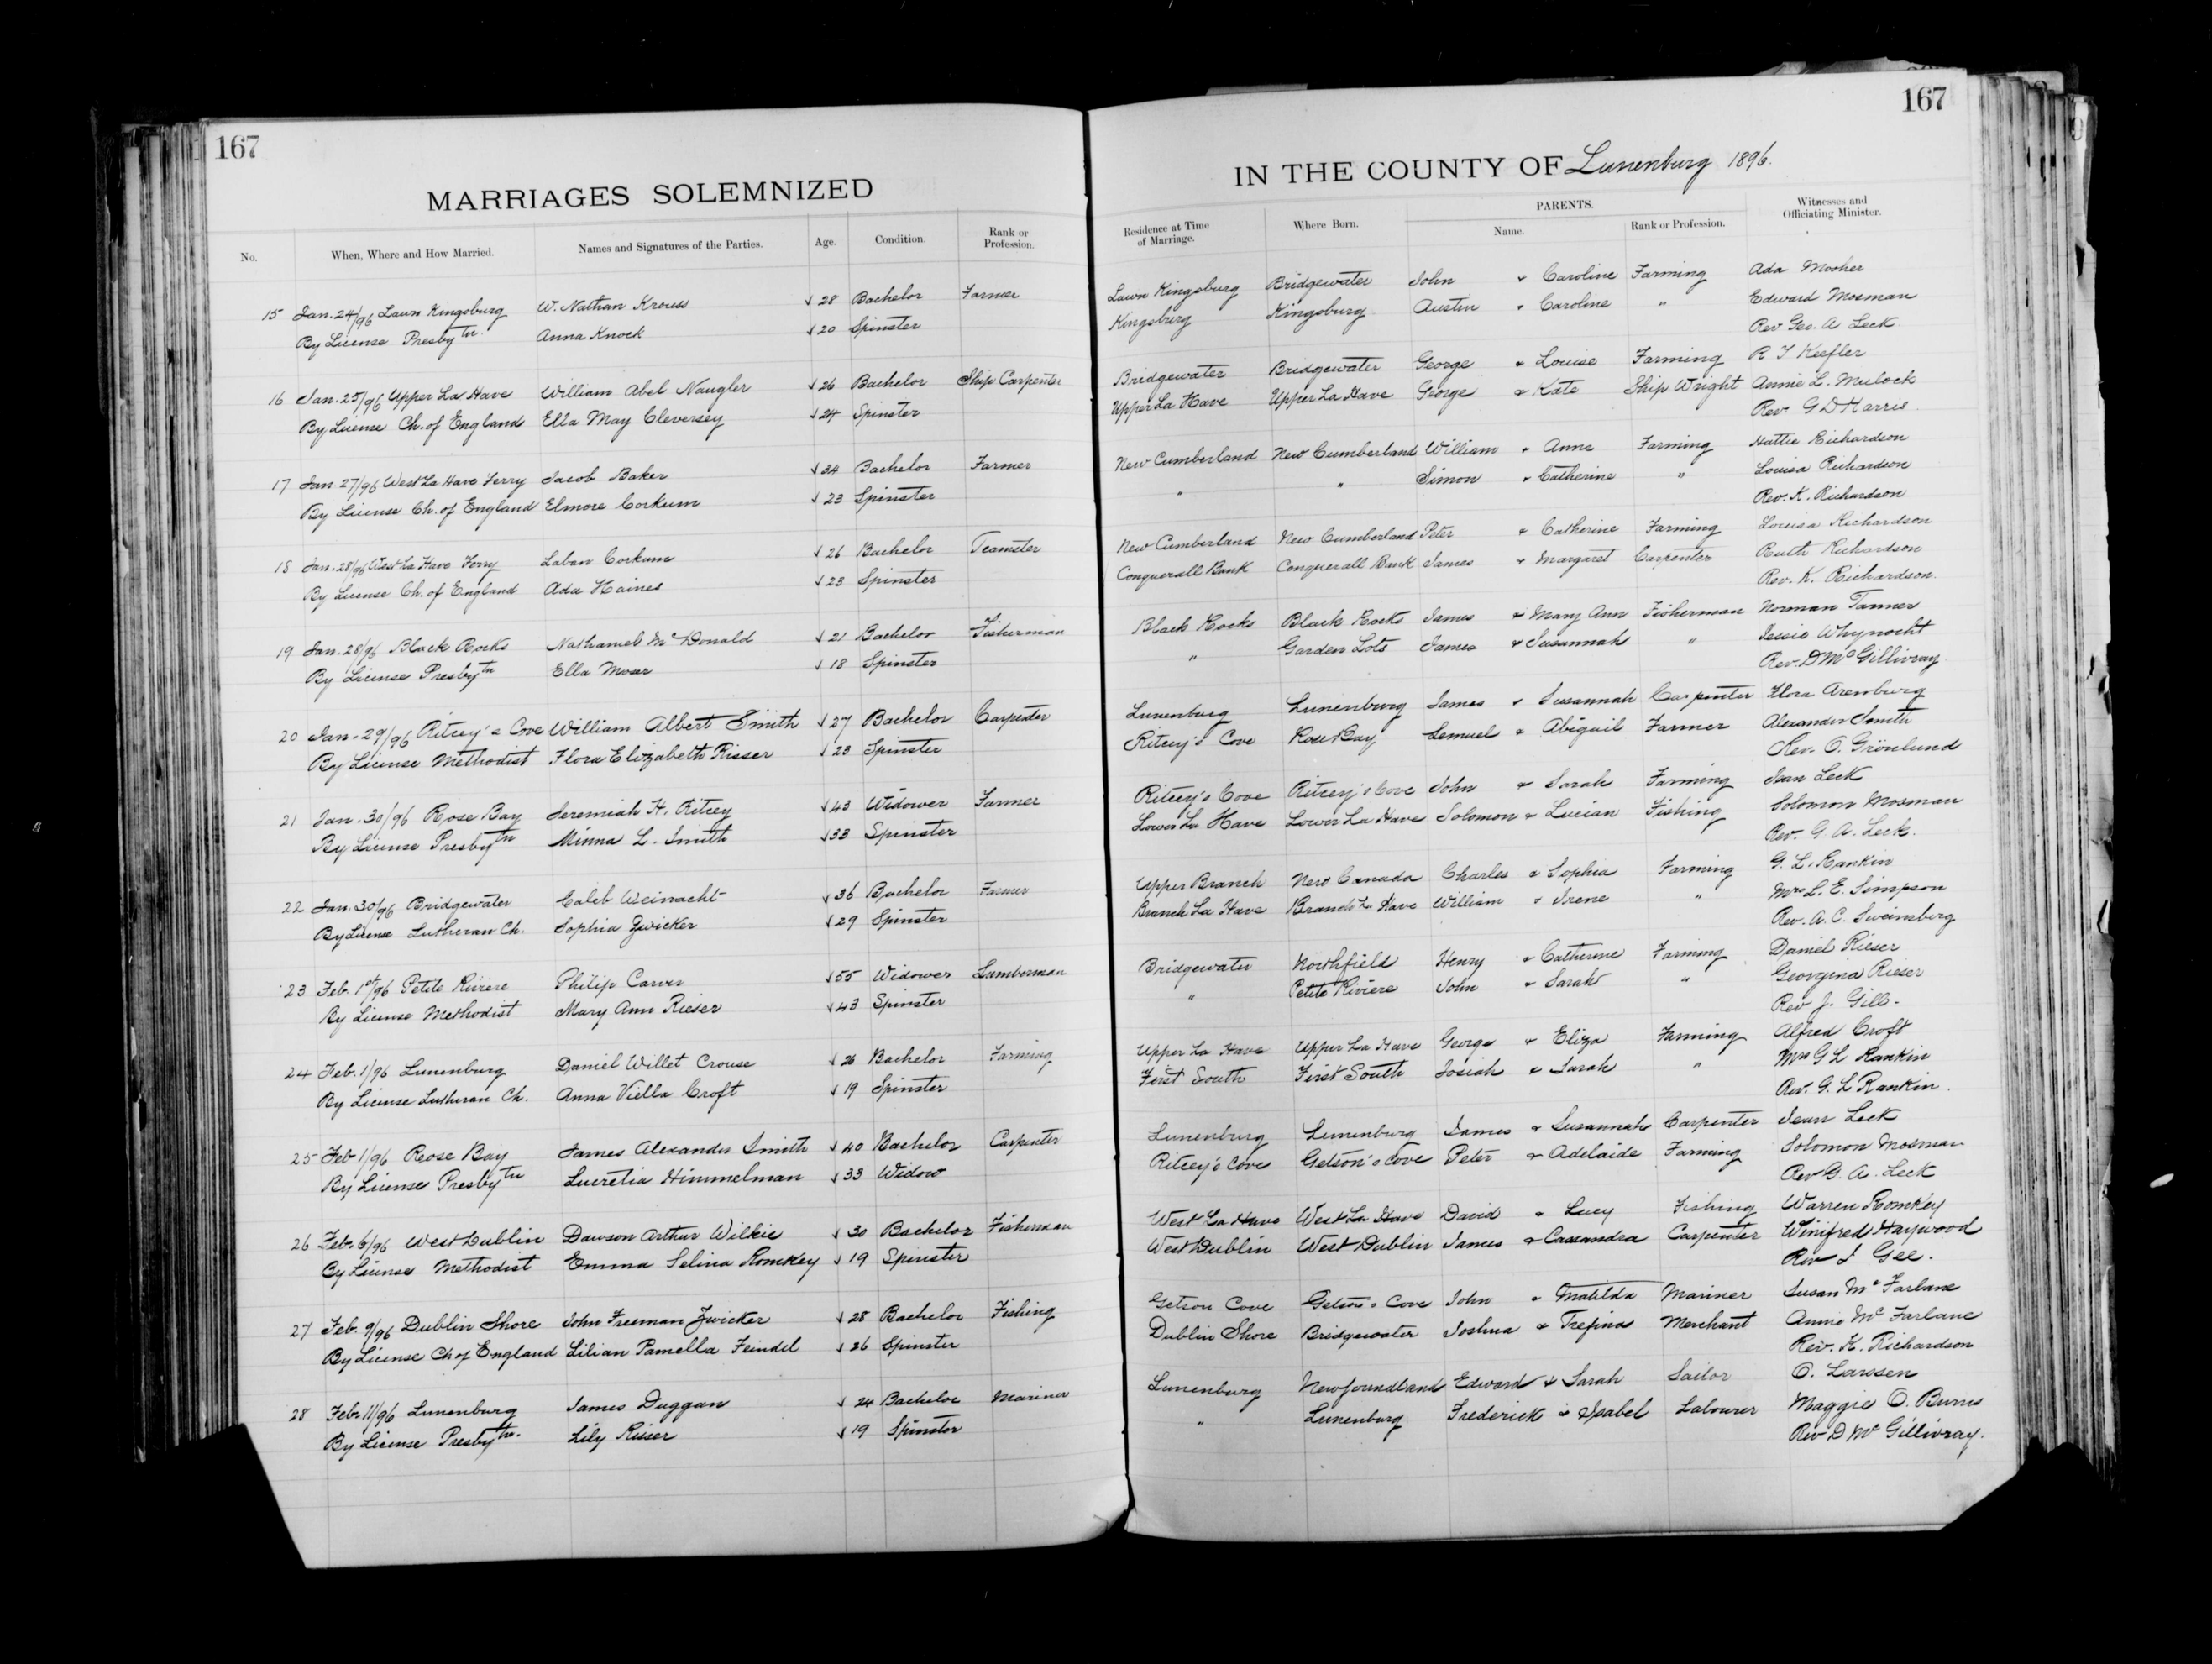 167
MARRIAGES SOLEMNIZED
No. When, Where and How Married. Names and Signatures of the Parties. Age. Condition. Rank or Profession.
15 Jan. 24/96 Lawn Kingsburg W. Nathan Krouss √ 28 Bachelor Farmer
By License Presbytn. Anna Knock √ 20 Spinster
16 Jan. 25/96 Upper La Have William Abel Naugler √ 26 Bachelor Ship Carpenter
By License Ch. of England Ella May Cleversey √ 24 Spinster
17 Jan 27/96 West La Have Ferry Jacob Baker √ 34 Bachelor Farmer
By License Ch. of England Elmore Corkum √ 23 Spinster
18 Jan. 28/96 West La Have Ferry Laban Corkum √ 26 Bachelor Teamster
By License Ch. of England Ada Haines √ 23 Spinster
19 Jan. 28/96 Black Rocks Nathaniel McDonald √ 21 Bachelor Fisherman
By License Presbytn Ella Moser √ 18 Spinster
20 Jan. 29/96 Ritcey's Cove William Albert Smith √ 27 Bachelor Carpenter
By License Methodist Flora Elizabeth Risser √ 23 Spinster
21 Jan. 30/96 Rose Bay Jeremiah H. Ritcey √ 43 Widower Farmer
By License Presbytn Minna L. Smith √ 33 Spinster
22 Jan. 30/96 Bridgewater Caleb Weinacht √ 36 Bachelor Farmer
By License Lutheran Ch. Sophia Zwicker √ 29 Spinster
23 Feb. 1st/96 Petite Riviere Philip Carver √ 55 Widower Lumberman
By License Methodist Mary Ann Rieser √ 43 Spinster
24 Feb. 1/96 Lunenburg Daniel Willet Crouse √ 26 Bachelor Farming
By License Lutheran Ch. Anna Viella Croft √ 19 Spinster
25 Feb 1/96 Rose Bay James Alexander Smith √ 40 Bachelor Carpenter
By License Presbytn Lucretia Himmelman √ 33 Widow
26 Feb. 6/96 West Dublin Dawson Arthur Wilkie √ 30 Bachelor Fisherman
By License Methodist Emma Selina Romkey √ 19 Spinster
27 Feb. 9/96 Dublin Shore John Freeman Zwicker √ 28 Bachelor Fishing
By License Ch of England Lilian Pamella Feindel √ 26 Spinster
28 Feb. 11/96 Lunenburg James Duggan √ 24 Bachelor Mariner
By License Presbytn. Lily Risser √ 19 Spinster
167
IN THE COUNTY OF Lunenburg 1896.
Residence at Time of Marriage. Where Born. PARENTS. Name. Rank or Profession. Witnesses and Officiating Minister.
Lawn Kingsburg Bridgewater John & Caroline Farming Ada Mosher
Kingsburg Kingsburg Austin & Caroline " Edward Mosman
Rev Geo. A Leck.
Bridgewater Bridgewater George & Louise Farming R T Keefler
Upper La Have Upper La Have George & Kate Ship Wright Annie L. Mulock
Rev. G D Harris
New Cumberland New Cumberland William & Anne Farming Hattie Richardson
" " Simon & Catherine " Louisa Richardson
Rev. K. Richardson
New Cumberland New Cumberland Peter & Catherine Farming Louisa Richardson
Conquerall Bank Conquerall Bank James & Margaret Carpenter Ruth Richardson
Rev. K. Richardson.
Black Rocks Black Rocks James & Mary Ann Fisherman Norman Tanner
" Garden Lots James & Susannah " Jessie Whynocht
Rev. D McGillivray
Lunenburg Lunenburg James & Susannah Carpenter Flora Arenburg
Ritcey's Cove Rose Bay Lemuel & Abigail Farmer Alexander Smith
Rev. O. Grönlund
Ritcey's Cove Ritcey's Cove John & Sarah Farming Jean Leck
Lower La Have Lower La Have Solomon & Lucian Fishing Solomon Mosman
Rev. G. A. Leck.
Upper Branch New Canada Charles & Sophia Farming G. L. Rankin
Branch La Have Branch La Have William & Irene " Mrs L. E. Simpson
Rev. A. C. Sweinsberg
Bridgewater Northfield Henry & Catherine Farming Daniel Rieser
" Petite Riviere John & Sarah " Georgina Rieser
Rev J. Gill.
Upper La Have Upper La Have George & Eliza Farming Alfred Croft
First South First South Josiah & Sarah " Mrs G L Rankin
Rev. G. L Rankin.
Lunenburg Lunenburg James & Susannah Carpenter Jean Leck
Ritcey's Cove Getson's Cove Peter & Adelaide Farming Solomon Mosman
Rev G. A. Leck
West La Have West La Have David & Lucy Fishing Warren Romkey
West Dublin West Dublin James & Cassandra Carpenter Winifred Haywood
Rev J Gee.
Getson Cove Getson's Cove John & Matilda Mariner Susan McFarlane
Dublin Shore Bridgewater Joshua & Trefina Merchant Annie McFarlane
Rev. K. Richardson
Lunenburg Newfoundland Edward & Sarah Sailor O. Lawsen
" Lunenburg Frederick & Isabel Labourer Maggie O. Burns
Rev D McGillivray.